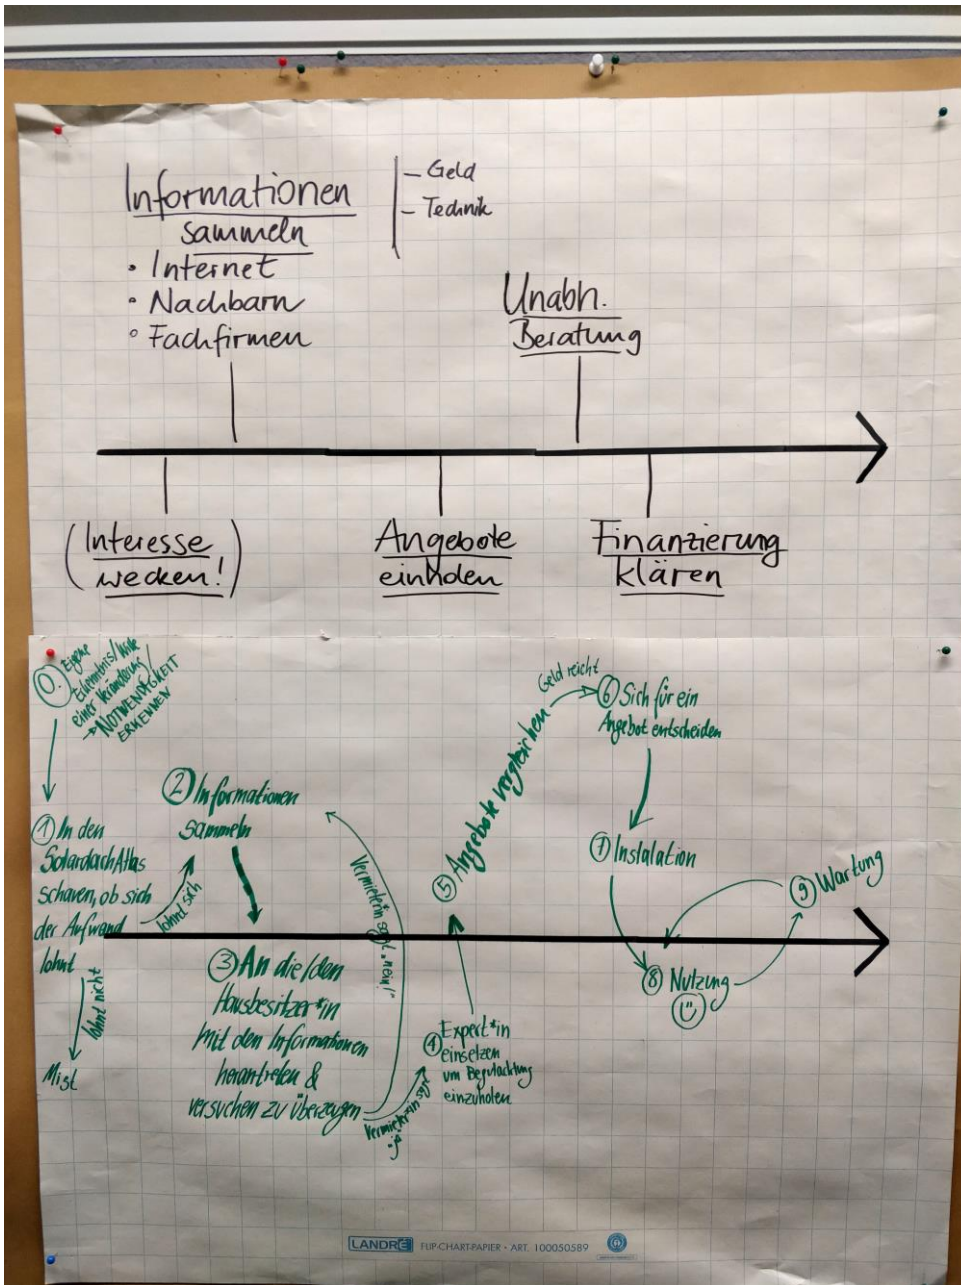 Informationen
sammeln
• Internet
• Nachbarn
• Fachfirmen
– Geld
– Technik
Unabh.
Beratung
(Interesse
wecken!)
Angebote
einholen
Finanzierung
klären
0. Eigene
Erkenntnis/Wille
einer Veränderung/
→ NOTWENDIGKEIT
ERKENNEN
1 In den
SolardachAtlas
schauen, ob sich
der Aufwand
lohnt
lohnt nicht
Mist
lohnt sich
2 Informationen
sammeln
3 An die/den
Hausbesitzer*in
mit den Informationen
herantreten &
versuchen zu überzeugen
Vermieterin sagt „nein!"
Vermieter*in sagt
"ja"
4 Expert*in
einsetzen
um Begutachtung
einzuholen
5 Angebote vergleichen
Geld reicht
6 Sich für ein
Angebot entscheiden
7 Instalation
8 Nutzung
9 Wartung
LANDRÉ FLIP-CHART-PAPIER • ART. 100050589